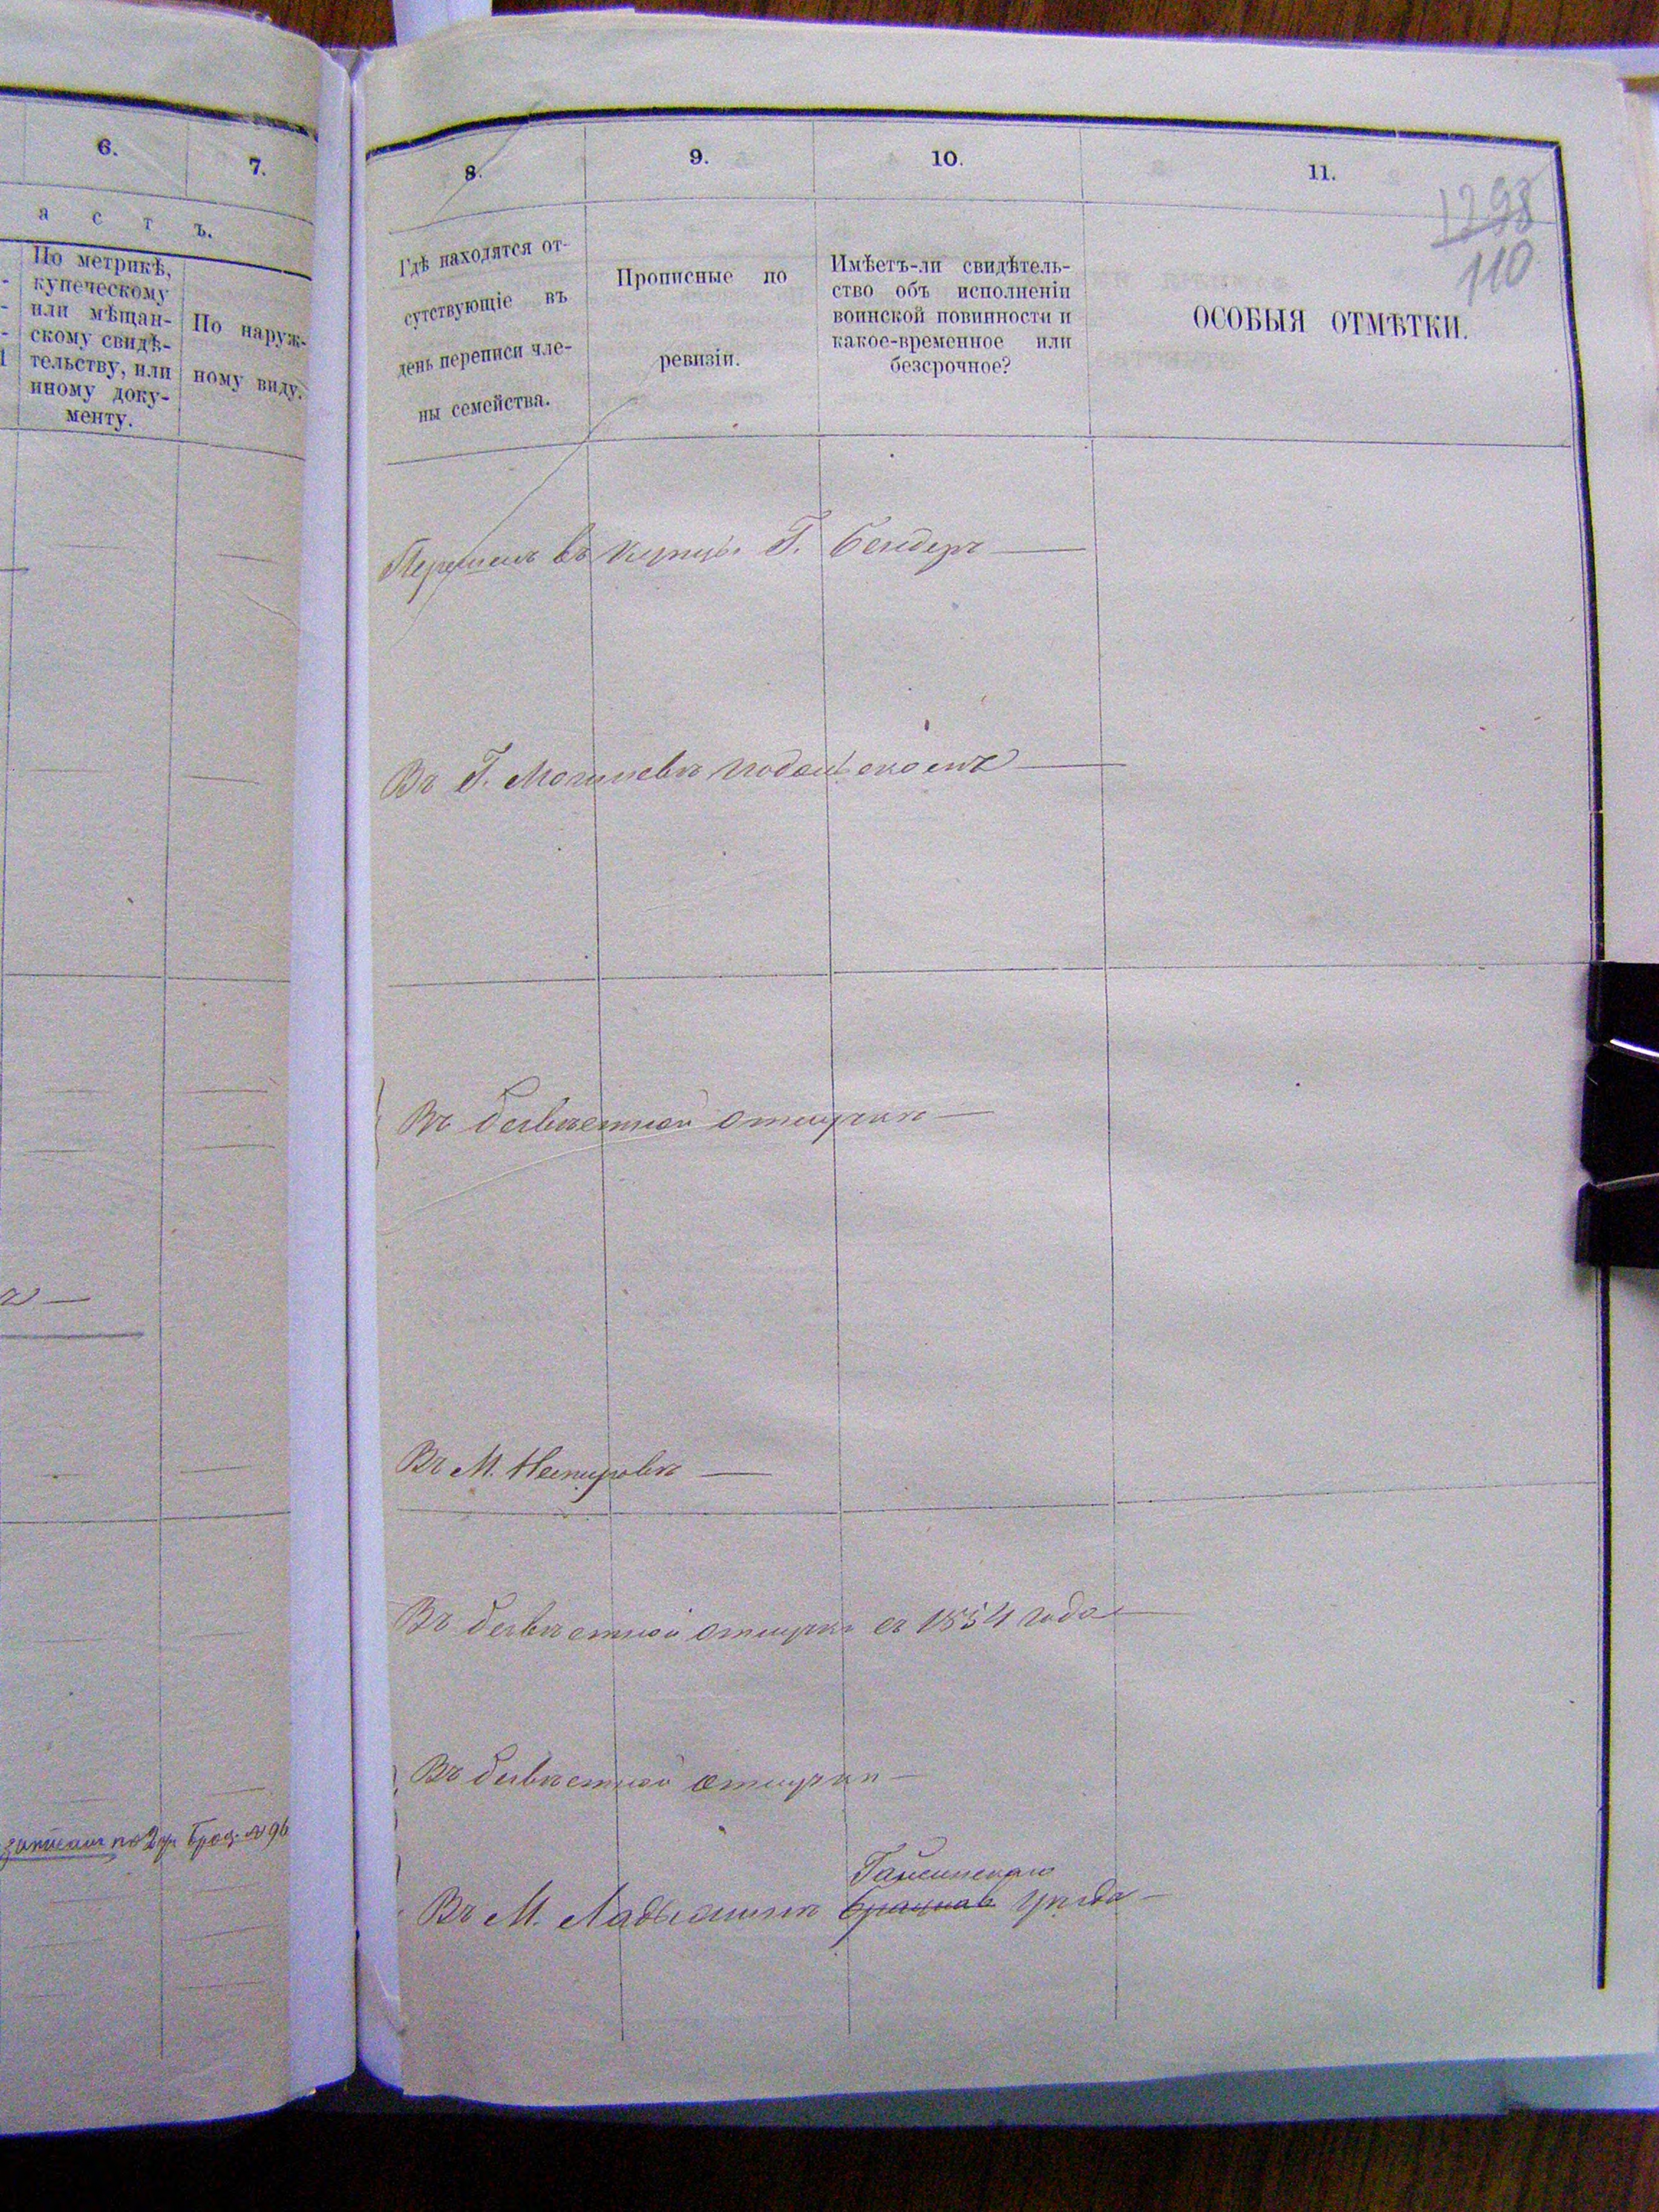 6.
7.
а с т ъ.
По метрикѣ,
купеческому
или мѣщан-
скому свидѣ-
тельству, или
иному доку-
менту.
По наруж-
ному виду.
записанъ по 2 ч. Брац. №96
8.
9.
10.
11.
1298
110
Гдѣ находятся от-
сутствующіе въ
день переписи чле-
ны семейства.
Прописные по
ревизіи.
Имѣетъ-ли свидѣтель-
ство объ исполненіи
воинской повинности и
какое-временное или
безсрочное?
ОСОБЫЯ ОТМѢТКИ.
Перешелъ въ купцы Г. Бендеръ
Въ Г. Могилевѣ подольскомъ
Въ безвѣстной отлучкѣ
Въ М. Немировѣ
Въ безвѣстной отлучкѣ съ 1854 года
Въ безвѣстной отлучкѣ
Гайсинскаго
Въ М. Ладыжинѣ Брацлав Уѣзда